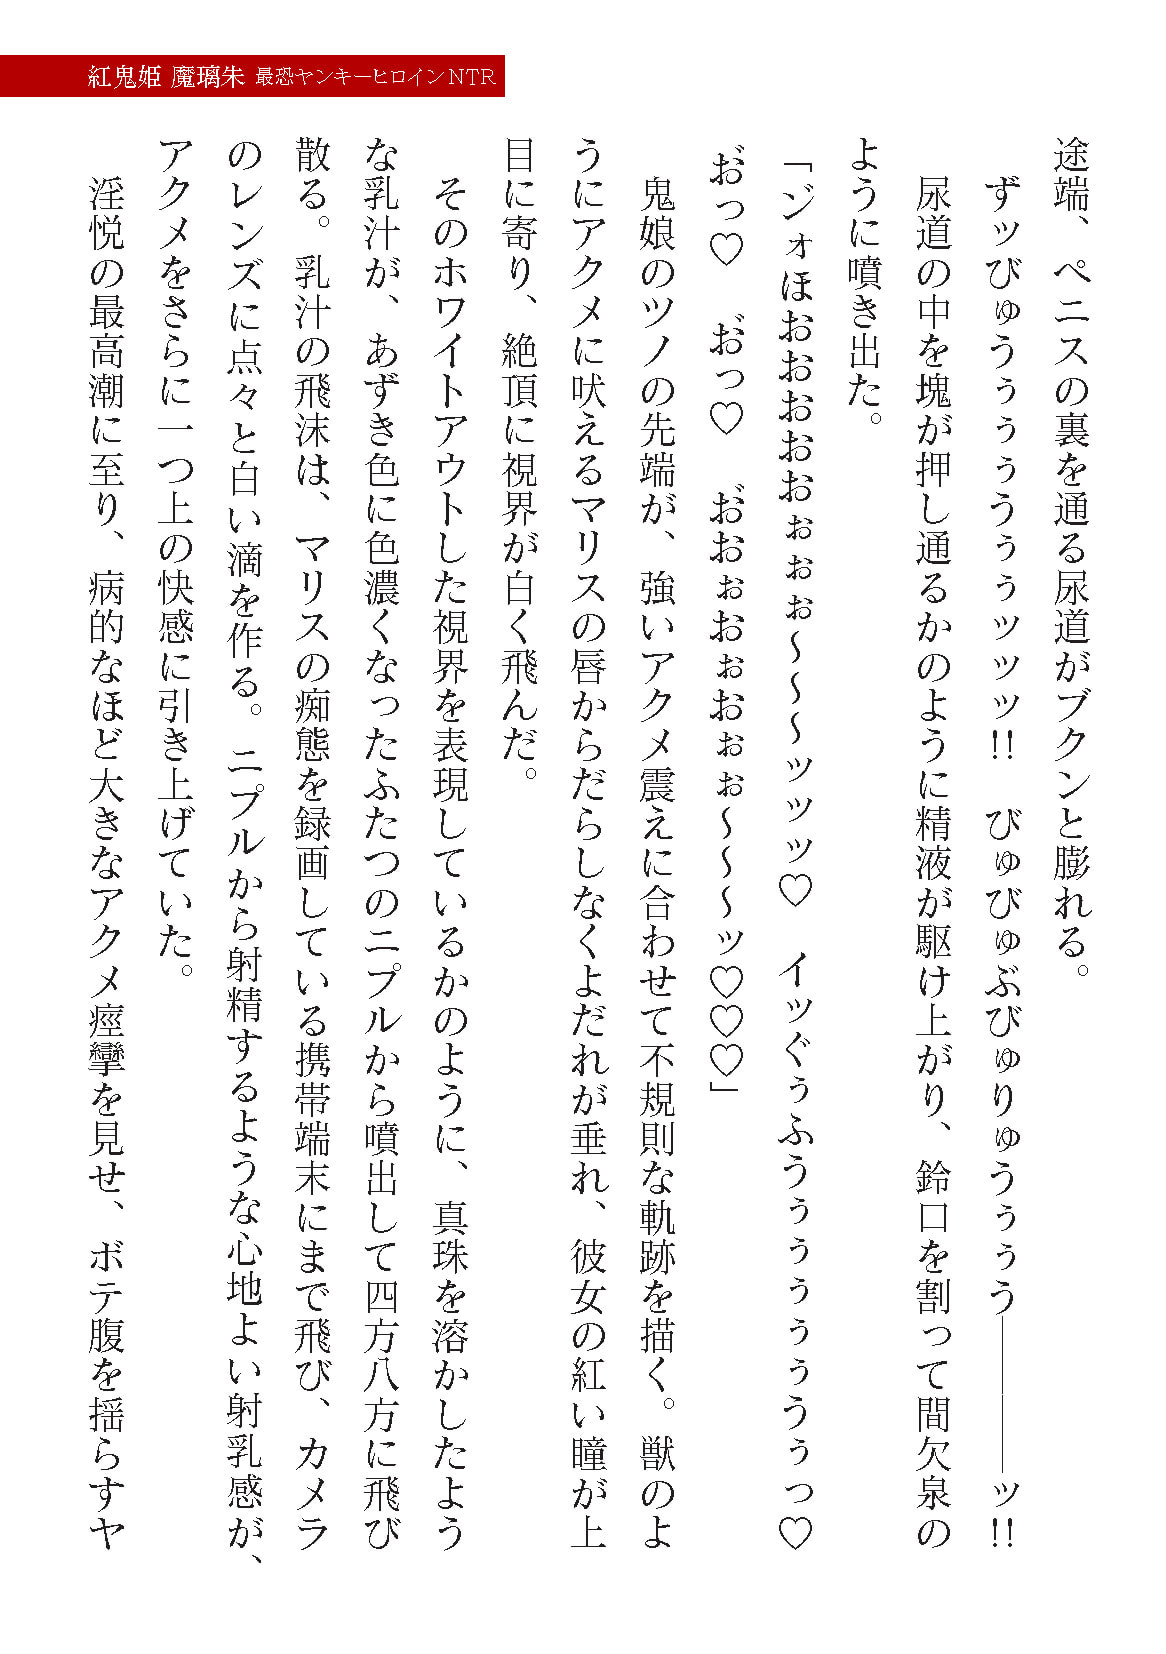 紅鬼姫 魔璃朱 最恐ヤンキーヒロインNTR
途端、ペニスの裏を通る尿道がブクンと膨れる。
ずッびゅうぅぅぅうぅぅッッッ!! びゅびゅぶびゅりゅうぅぅう――――ッ!!
尿道の中を塊が押し通るかのように精液が駆け上がり、鈴口を割って間欠泉の
ように噴き出た。
「ジォほおおおおおぉぉぉ～～～ッッッ♡ イッぐぅふうぅぅぅぅぅうぅっ♡
お゛っ♡ お゛っ♡ お゛おぉおぉおぉぉ～～～ッ♡♡♡」
鬼娘のツノの先端が、強いアクメ震えに合わせて不規則な軌跡を描く。獣のよ
うにアクメに吠えるマリスの唇からだらしなくよだれが垂れ、彼女の紅い瞳が上
目に寄り、絶頂に視界が白く飛んだ。
そのホワイトアウトした視界を表現しているかのように、真珠を溶かしたよう
な乳汁が、あずき色に色濃くなったふたつのニプルから噴出して四方八方に飛び
散る。乳汁の飛沫は、マリスの痴態を録画している携帯端末にまで飛び、カメラ
のレンズに点々と白い滴を作る。ニプルから射精するような心地よい射乳感が、
アクメをさらに一つ上の快感に引き上げていた。
淫悦の最高潮に至り、病的なほど大きなアクメ痙攣を見せ、ボテ腹を揺らすヤ